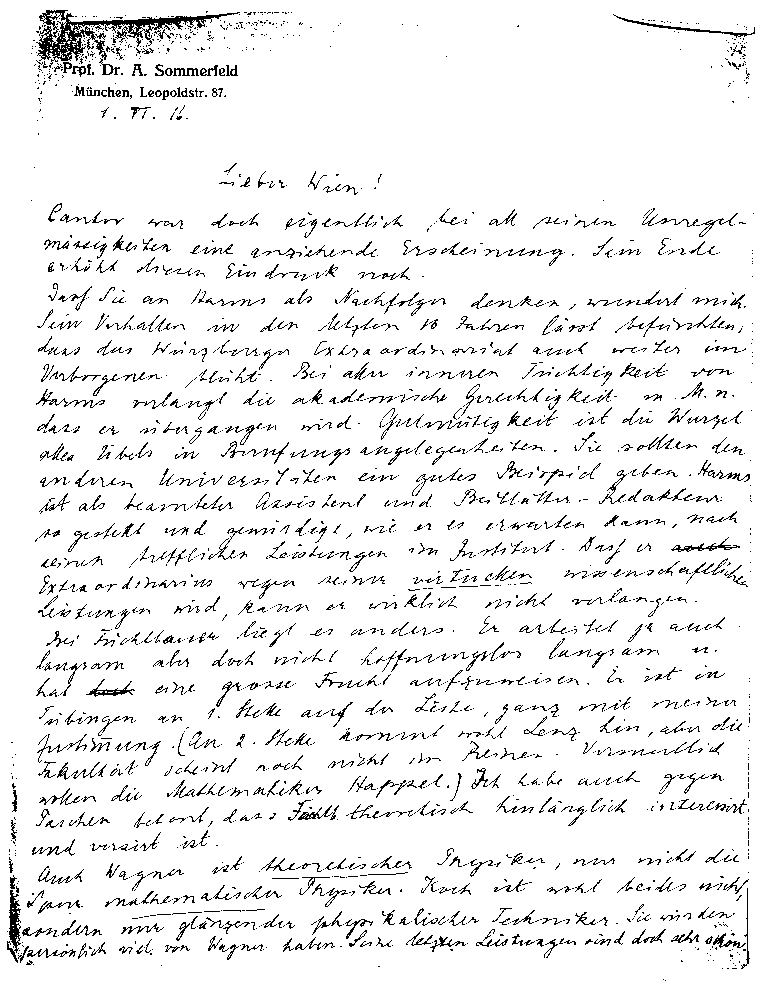 Prof. Dr. A. Sommerfeld
München, Leopoldstr. 87.
1. VI. 16.
Lieber Wien!
Cantor war doch eigentlich bei all seinen Unregel-
mässigkeiten eine anziehende Erscheinung. Sein Ende
erhöht diesen Eindruck noch.
Dass Sie an Harms als Nachfolger denken, wundert mich.
Sein Verhalten in den letzten 10 Jahren lässt befürchten,
dass das Würzburger Extraordinariat auch weiter im
Verborgenen blüht. Bei aller inneren Tüchtigkeit von
Harms verlangt die akademische Gerechtigkeit m. M. n.
dass er übergangen wird. Gutmütigkeit ist die Wurzel
alles Übels in Berufungsangelegenheiten. Sie sollten den
anderen Universitäten ein gutes Beispiel geben. Harms
ist als beamteter Assistent und Beiblätter-Redakteur
so gestellt und gewürdigt, wie er es erwarten kann, nach
seinen trefflichen Leistungen im Institut. Dass er auch
Extraordinarius wegen seiner virtuellen wissenschaftlichen
Leistungen wird, kann er wirklich nicht verlangen.
Bei Füchtbauer liegt es anders. Er arbeitet ja auch
langsam aber doch nicht hoffnungslos langsam u.
hat doch eine grosse Frucht aufzuweisen. Er ist in
Tübingen an 1. Stelle auf der Liste, ganz mit meiner
Zustimmung. (An 2. Stelle kommt wohl Lenz hin, aber die
Fakultät scheint noch nicht im Reinen. Vermutlich
wollen die Mathematiker Happel.) Ich habe auch gegen
Paschen betont, dass Füchtb. theoretisch hinlänglich interessirt
und versirt ist.
Auch Wagner ist theoretischer Physiker, nur nicht die
Spur mathematischer Physiker. Koch ist wohl beides nicht,
sondern nur glänzender physikalischer Techniker. Sie würden
persönlich viel von Wagner haben. Seine letzten Leistungen sind doch sehr schön.